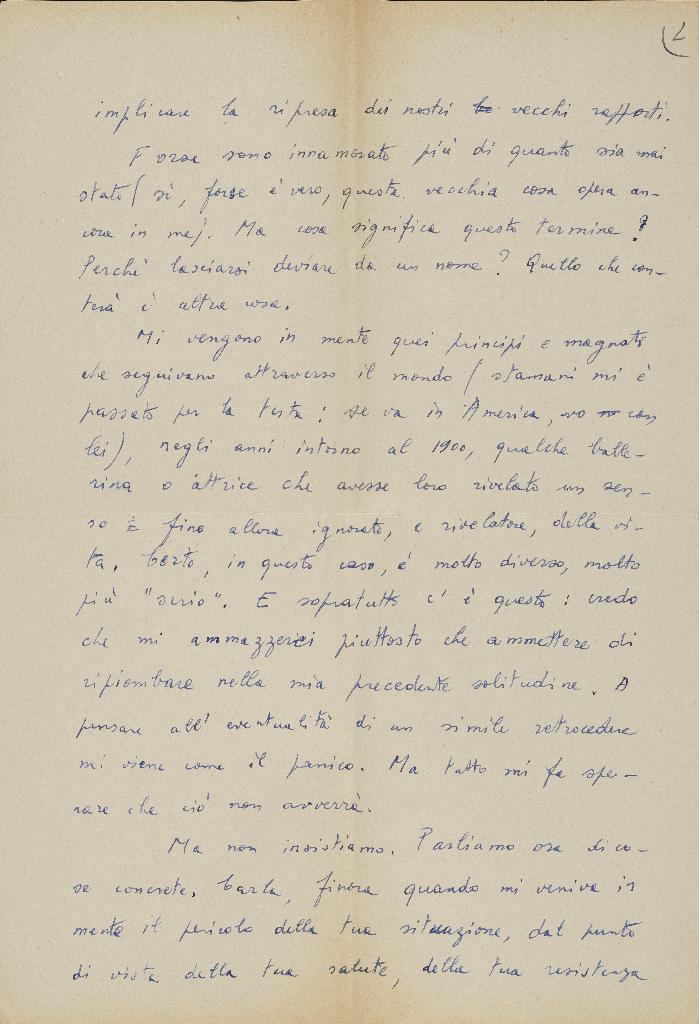 2
implicare la ripresa dei nostri vecchi rapporti.
Forse sono innamorato più di quanto sia mai
stato (sì, forse è vero, questa vecchia cosa opera an-
cora in me). Ma cosa significa questo termine?
Perchè lasciarsi deviare da un nome? Quello che con-
terà è altra cosa.
Mi vengono in mente quei principi e magnati
che seguivano attraverso il mondo (stamani mi è
passato per la testa: se va in America, vo con
lei), negli anni intorno al 1900, qualche balle-
rina o attrice che avesse loro rivelato un sen-
so fino allora ignorato, e rivelatore, della vi-
ta. Certo, in questo caso, è molto diverso, molto
più "serio". E sopratutto c'è questo: credo
che mi ammazzerei piuttosto che ammettere di
ripiombare nella mia precedente solitudine. A
pensare all'eventualità di un simile retrocedere
mi viene come il panico. Ma tutto mi fa spe-
rare che ciò non avverrà.
Ma non insistiamo. Parliamo ora di co-
se concrete. Carla, finora quando mi veniva in
mente il pericolo della tua situazione, dal punto
di vista della tua salute, della tua resistenza